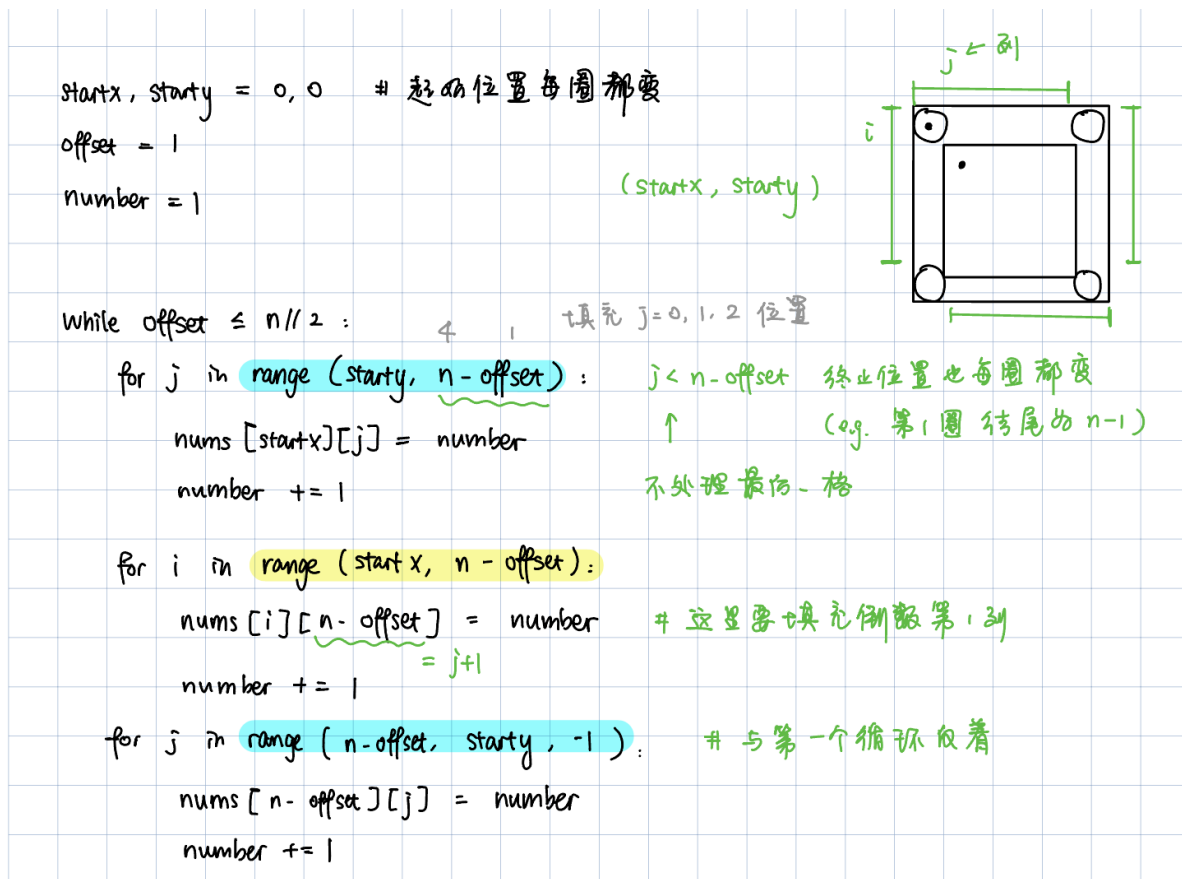 j ← 列
startx, starty = 0, 0 # 起始位置每圈都变
i
offset = 1
number = 1
(startx, starty)
while offset ≤ n//2 :
4 1 填充 j=0, 1, 2 位置
for j in range (starty, n - offset) : j < n - offset 终止位置也每圈都变
nums [startx][j] = number ↑ (e.g. 第1圈结尾为 n-1)
number += 1 不处理最后一格
for i in range (startx, n - offset) :
nums [i][n - offset] = number # 这里要填充倒数第1列
= j+1
number += 1
for j in range (n-offset, starty, -1) : # 与第一个循环反着
nums [n - offset][j] = number
number += 1